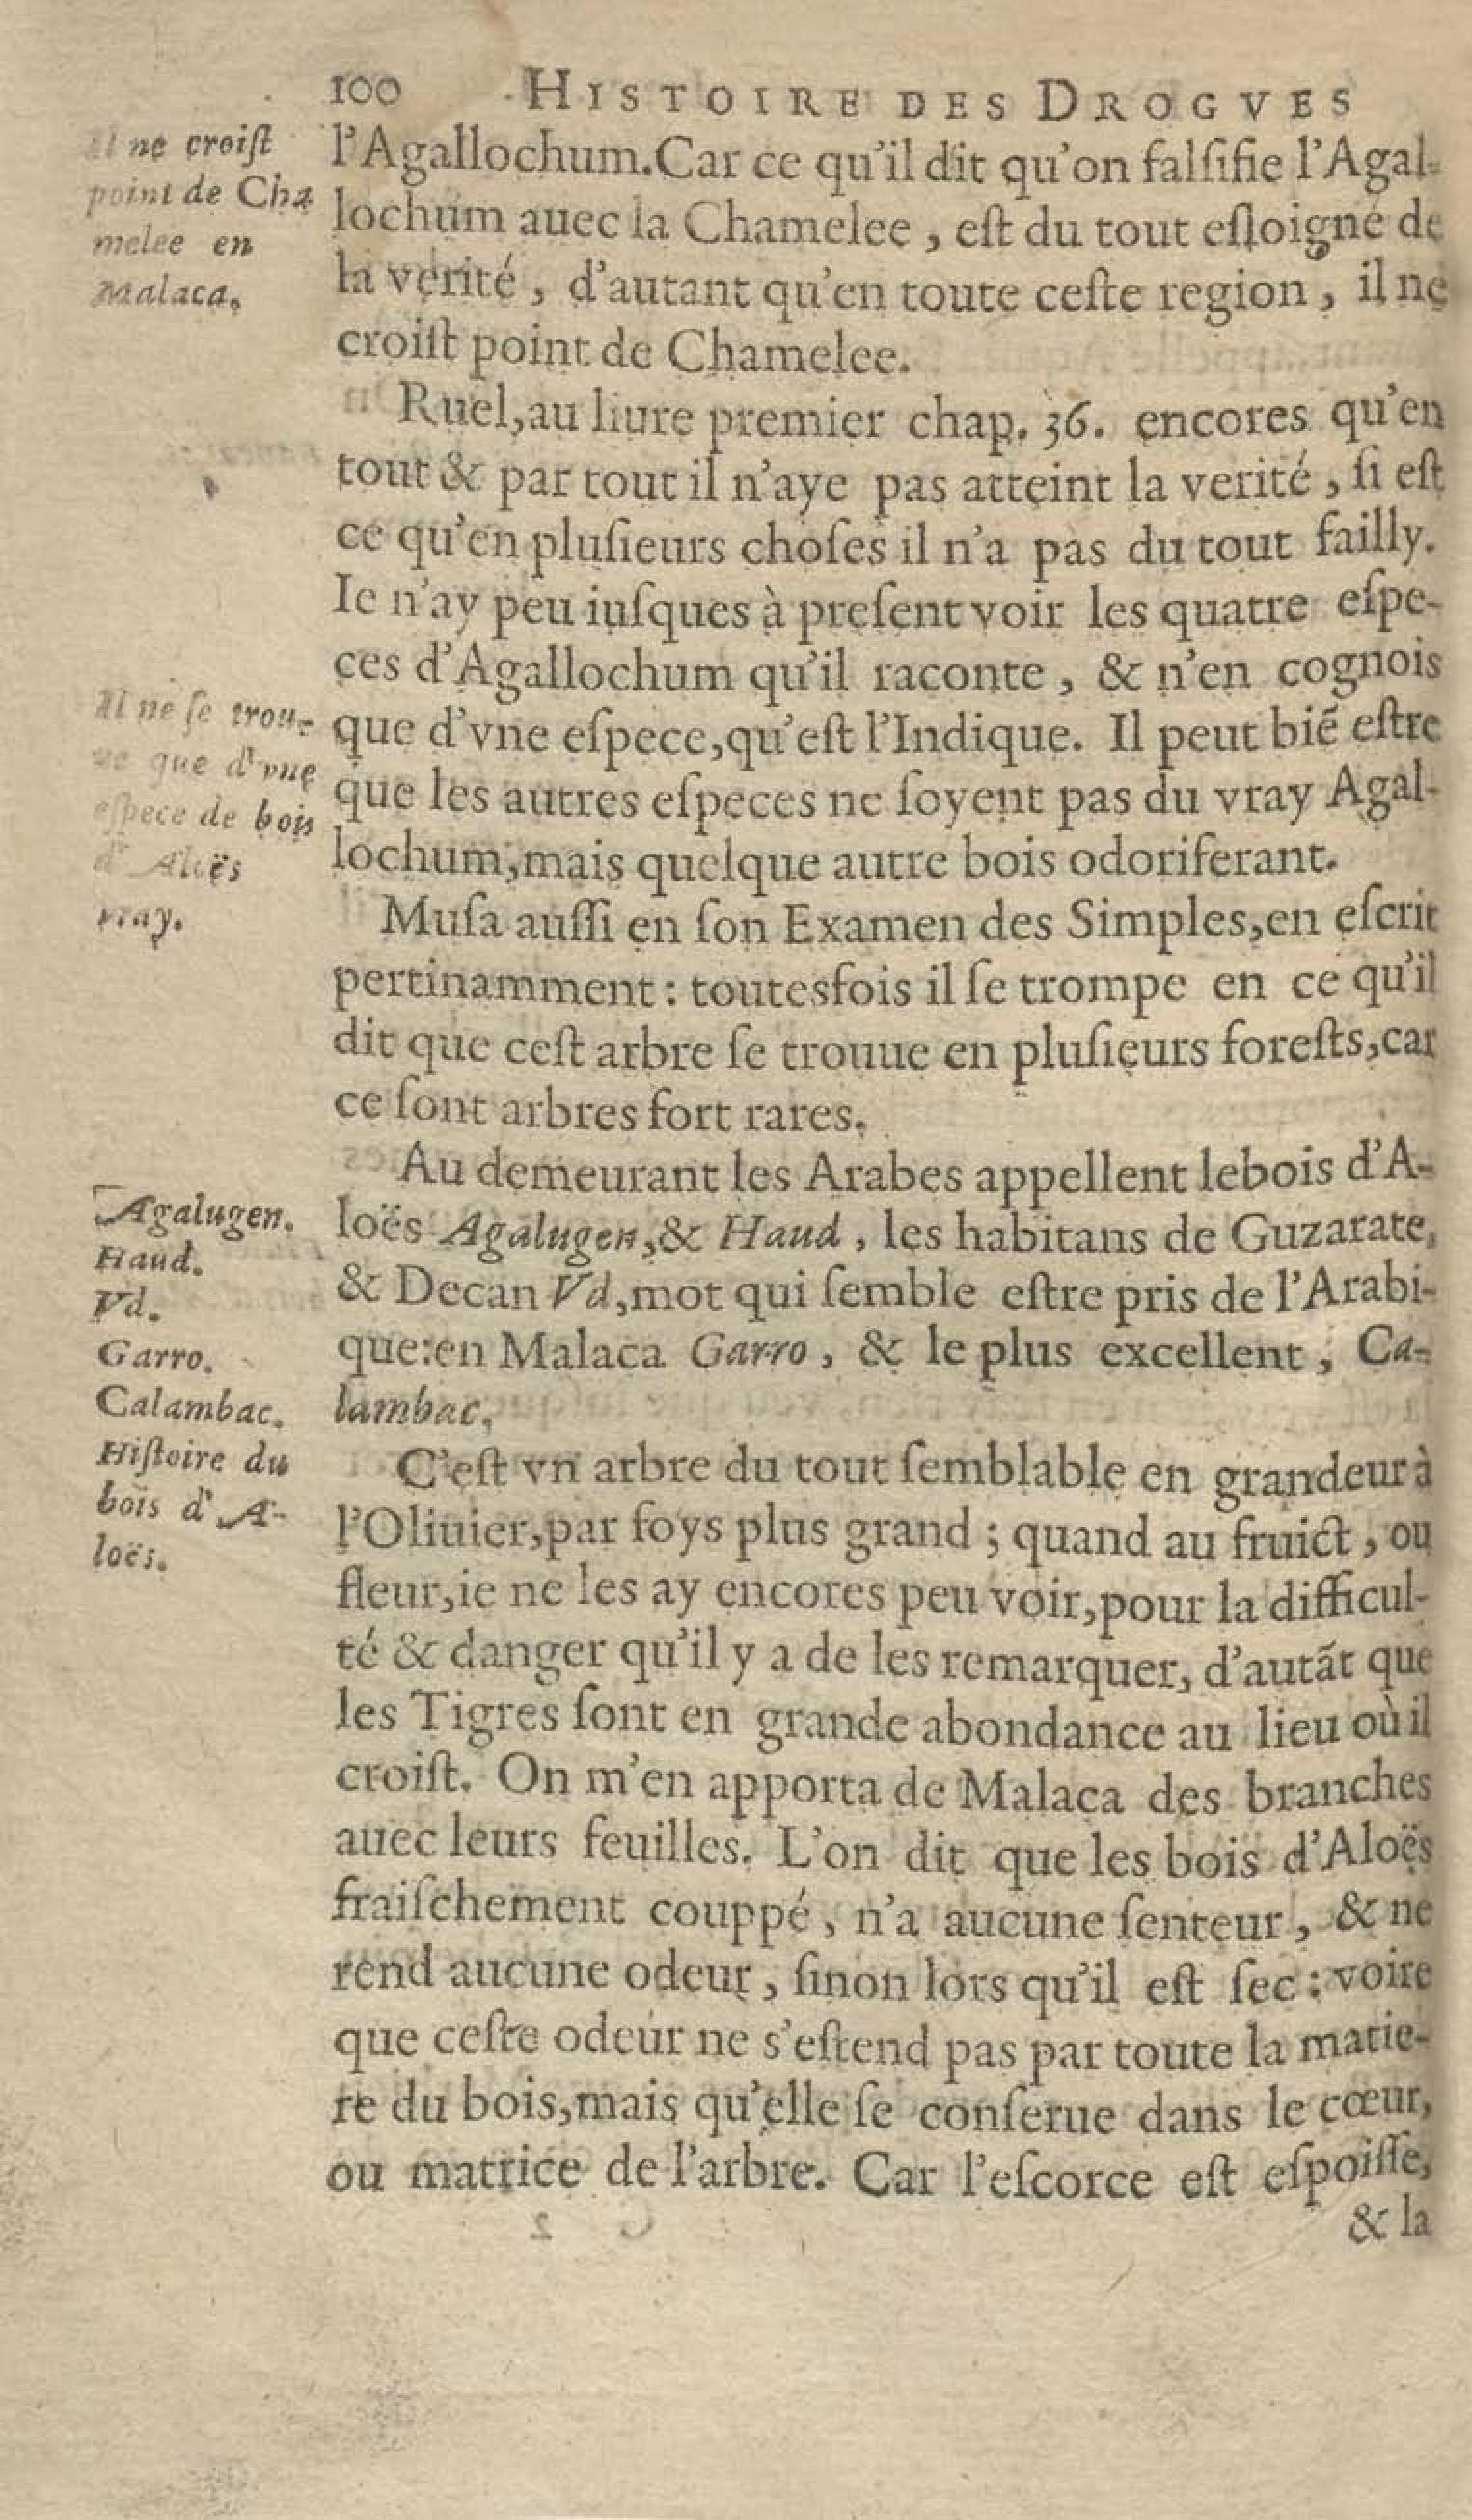 100 HISTOIRE DES DROGVES
Il ne croiſt
point de Cha
melee en
Malaca.
l'Agallochum. Car ce qu'il dit qu'on falſifie l'Agal-
lochum auec la Chamelee, eſt du tout eſloigné de
la verité, d'autant qu'en toute ceſte region, il ne
croiſt point de Chamelee.
Ruel, au liure premier chap. 36. encores qu'en
tout & par tout il n'aye pas atteint la verité, ſi eſt
ce qu'en pluſieurs choſes il n'a pas du tout failly.
Ie n'ay peu iuſques à preſent voir les quatre eſpe-
ces d'Agallochum qu'il raconte, & n'en cognois
Il ne ſe trou-
ue que d'vne
eſpece de bois
d'Aloës
vray.
que d'vne eſpece, qu'eſt l'Indique. Il peut biẽ eſtre
que les autres eſpeces ne ſoyent pas du vray Agal-
lochum, mais quelque autre bois odoriferant.
Muſa auſſi en ſon Examen des Simples, en eſcrit
pertinamment: toutesfois il ſe trompe en ce qu'il
dit que ceſt arbre ſe trouue en pluſieurs foreſts, car
ce ſont arbres fort rares.
Au demeurant les Arabes appellent lebois d'A-
Agalugen.
Haud.
Vd.
Garro.
Calambac.
loës Agalugen, & Haud, les habitans de Guzarate,
& Decan Vd, mot qui ſemble eſtre pris de l'Arabi-
que: en Malaca Garro, & le plus excellent, Ca-
lambac.
Hiſtoire du
bois d'A-
loës.
C'eſt vn arbre du tout ſemblable en grandeur à
l'Oliuier, par foys plus grand; quand au fruict, ou
fleur, ie ne les ay encores peu voir, pour la difficul-
té & danger qu'il y a de les remarquer, d'autãt que
les Tigres ſont en grande abondance au lieu où il
croiſt. On m'en apporta de Malaca des branches
auec leurs feuilles. L'on dit que les bois d'Aloës
fraiſchement couppé, n'a aucune ſenteur, & ne
rend aucune odeur, ſinon lors qu'il eſt ſec: voire
que ceſte odeur ne s'eſtend pas par toute la matie-
re du bois, mais qu'elle ſe conſerue dans le cœur,
ou matrice de l'arbre. Car l'eſcorce eſt eſpoiſſe,
& la